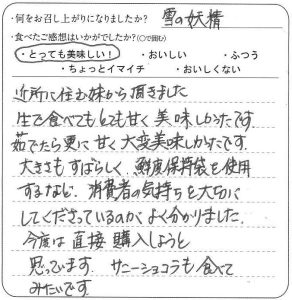 ・何をお召し上がりになりましたか？ 雪の妖精
・食べたご感想はいかがでしたか？（○で囲む）
・とっても美味しい！ ・おいしい ・ふつう
・ちょっとイマイチ ・おいしくない
近所に住む妹から頂きました
生で食べてもとても甘く美味しかったです。
茹でたら更に甘く大変美味しかったです。
大きさもすばらしく、鮮度保持袋を使用
するなど、消費者の気持ちを大切に
してくださっているのがよく分かりました。
今度は直接購入しようと
思っています。サニーショコラも食べて
みたいです。